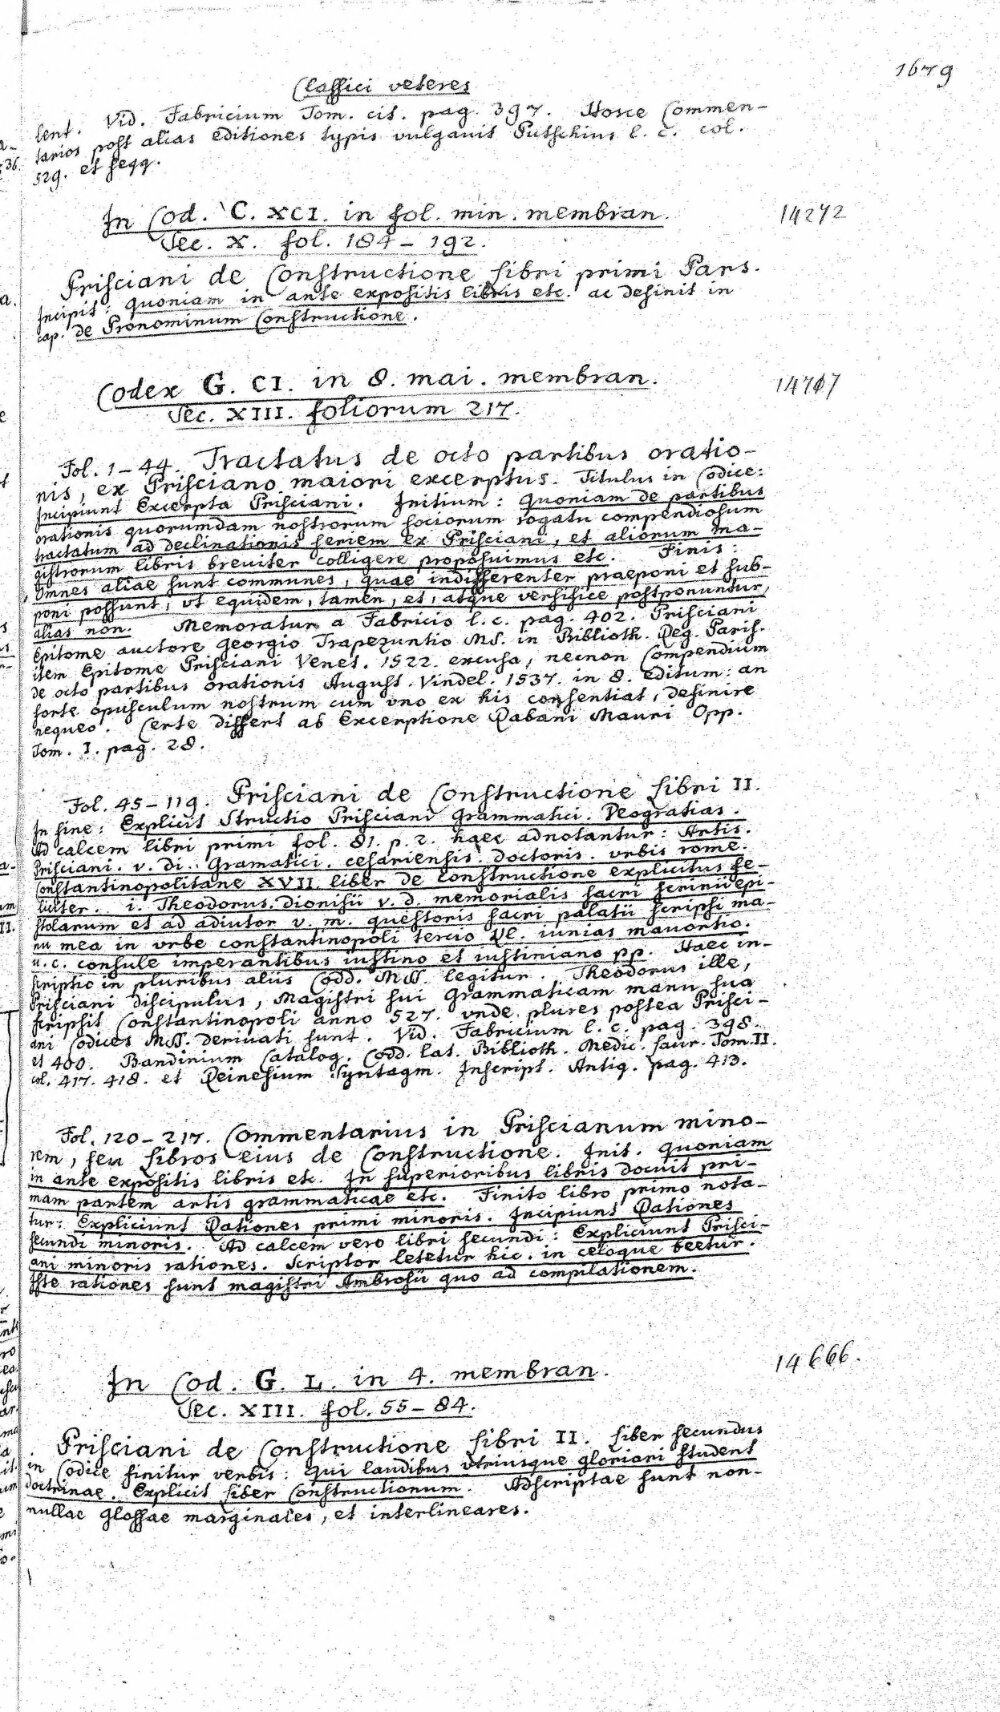 1679
Classici veteres
lent. Vid. Fabricium Tom. cit. pag. 397. Hosce Commen-
tarios post alias editiones typis vulgavit Putschius l. c. col.
529. et seqq.
In Cod. C. XCI. in fol. min. membran.
Sec. X. fol. 184-192.
14272
Prisciani de Constructione Libri primi Pars.
Incipit: Quoniam in ante expositis libris etc. ac desinit in
cap. de Pronominum Constructione.
Codex G. CI. in 8. mai. membran.
Sec. XIII. foliorum 217.
14707
Fol. 1-44. Tractatus de octo partibus oratio-
nis, ex Prisciano maiori excerptus. Titulus in Codice:
Incipiunt Excerpta Prisciani. Initium: Quoniam de partibus
orationis quorumdam nostrorum sociorum rogatu compendiosum
tractatum ad declinationis seriem ex Prisciani, et aliorum ma-
gistrorum libris breviter colligere proposuimus etc. Finis:
Omnes aliae sunt communes, quae indifferenter praeponi et sub-
poni possunt, ut equidem, tamen, et, atque versifice postponuntur,
alias non. Memoratur a Fabricio l. c. pag. 402. Prisciani
Epitome auctore Georgio Trapezuntio MS. in Biblioth. Reg. Paris.
item Epitome Prisciani Venet. 1522. excusa, necnon Compendium
de octo partibus orationis August. Vindel. 1537. in 8. editum: an
forte opusculum nostrum cum uno ex his consentiat, definire
nequeo. Certe differt ab Excerptione Rabani Mauri Opp.
Tom. I. pag. 28.
Fol. 45-119. Prisciani de Constructione Libri II.
In fine: Explicit Structio Prisciani Grammatici. Deogratias
Ad calcem libri primi fol. 81. p. 2. haec adnotantur: Artis.
Prisciani. v. di. Gramatici. cesariensis. doctoris. urbis rome.
Constantinopolitane XVII. liber de constructione explicitus fe-
liciter. i. Theodorus. dionisii v. d. memorialis sacri scrinii epi-
stolarum et ad adiutor v. m. questoris sacri palatii scripsi ma-
nu mea in urbe constantinopoli tercio Kl. iunias mavortio.
u. c. consule imperantibus iustino et iustiniano pp. Haec in-
scriptio in pluribus aliis Codd. MSS. legitur. Theodorus ille,
Prisciani discipulus, Magistri sui Grammaticam manu sua
scripsit Constantinopoli anno 527. unde plures postea Prisci-
ani Codices MSS. derivati sunt. Vid. Fabricium l. c. pag. 398.
et 400. Bandinium Catalog. Codd. Lat. Biblioth. Medic. Laur. Tom. II.
col. 417. 418. et Reinesium Syntagm. Inscript. Antiq. pag. 413.
Fol. 120-217. Commentarius in Priscianum mino-
rem, seu Libros eius de Constructione. Init. Quoniam
in ante expositis libris etc. In superioribus libris docuit pri-
mam partem artis grammaticae etc. Finito libro primo nota-
tur: Expliciunt Rationes primi minoris. Incipiunt Rationes
secundi minoris. Ad calcem vero libri secundi: Expliciunt Prisci-
ani minoris rationes. Scriptor letetur hic. in celoque beetur.
Iste rationes sunt magistri Ambrosii quo ad compilationem.
In Cod. G. L. in 4. membran.
Sec. XIII. fol. 55-84.
14666.
Prisciani de Constructione Libri II. Liber secundus
in Codice finitur verbis: Qui laudibus utriusque gloriani student
doctrinae. Explicit Liber Constructionum. Adscriptae sunt non-
nullae glossae marginales, et interlineares.